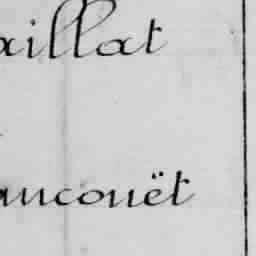 aillat
ancouët